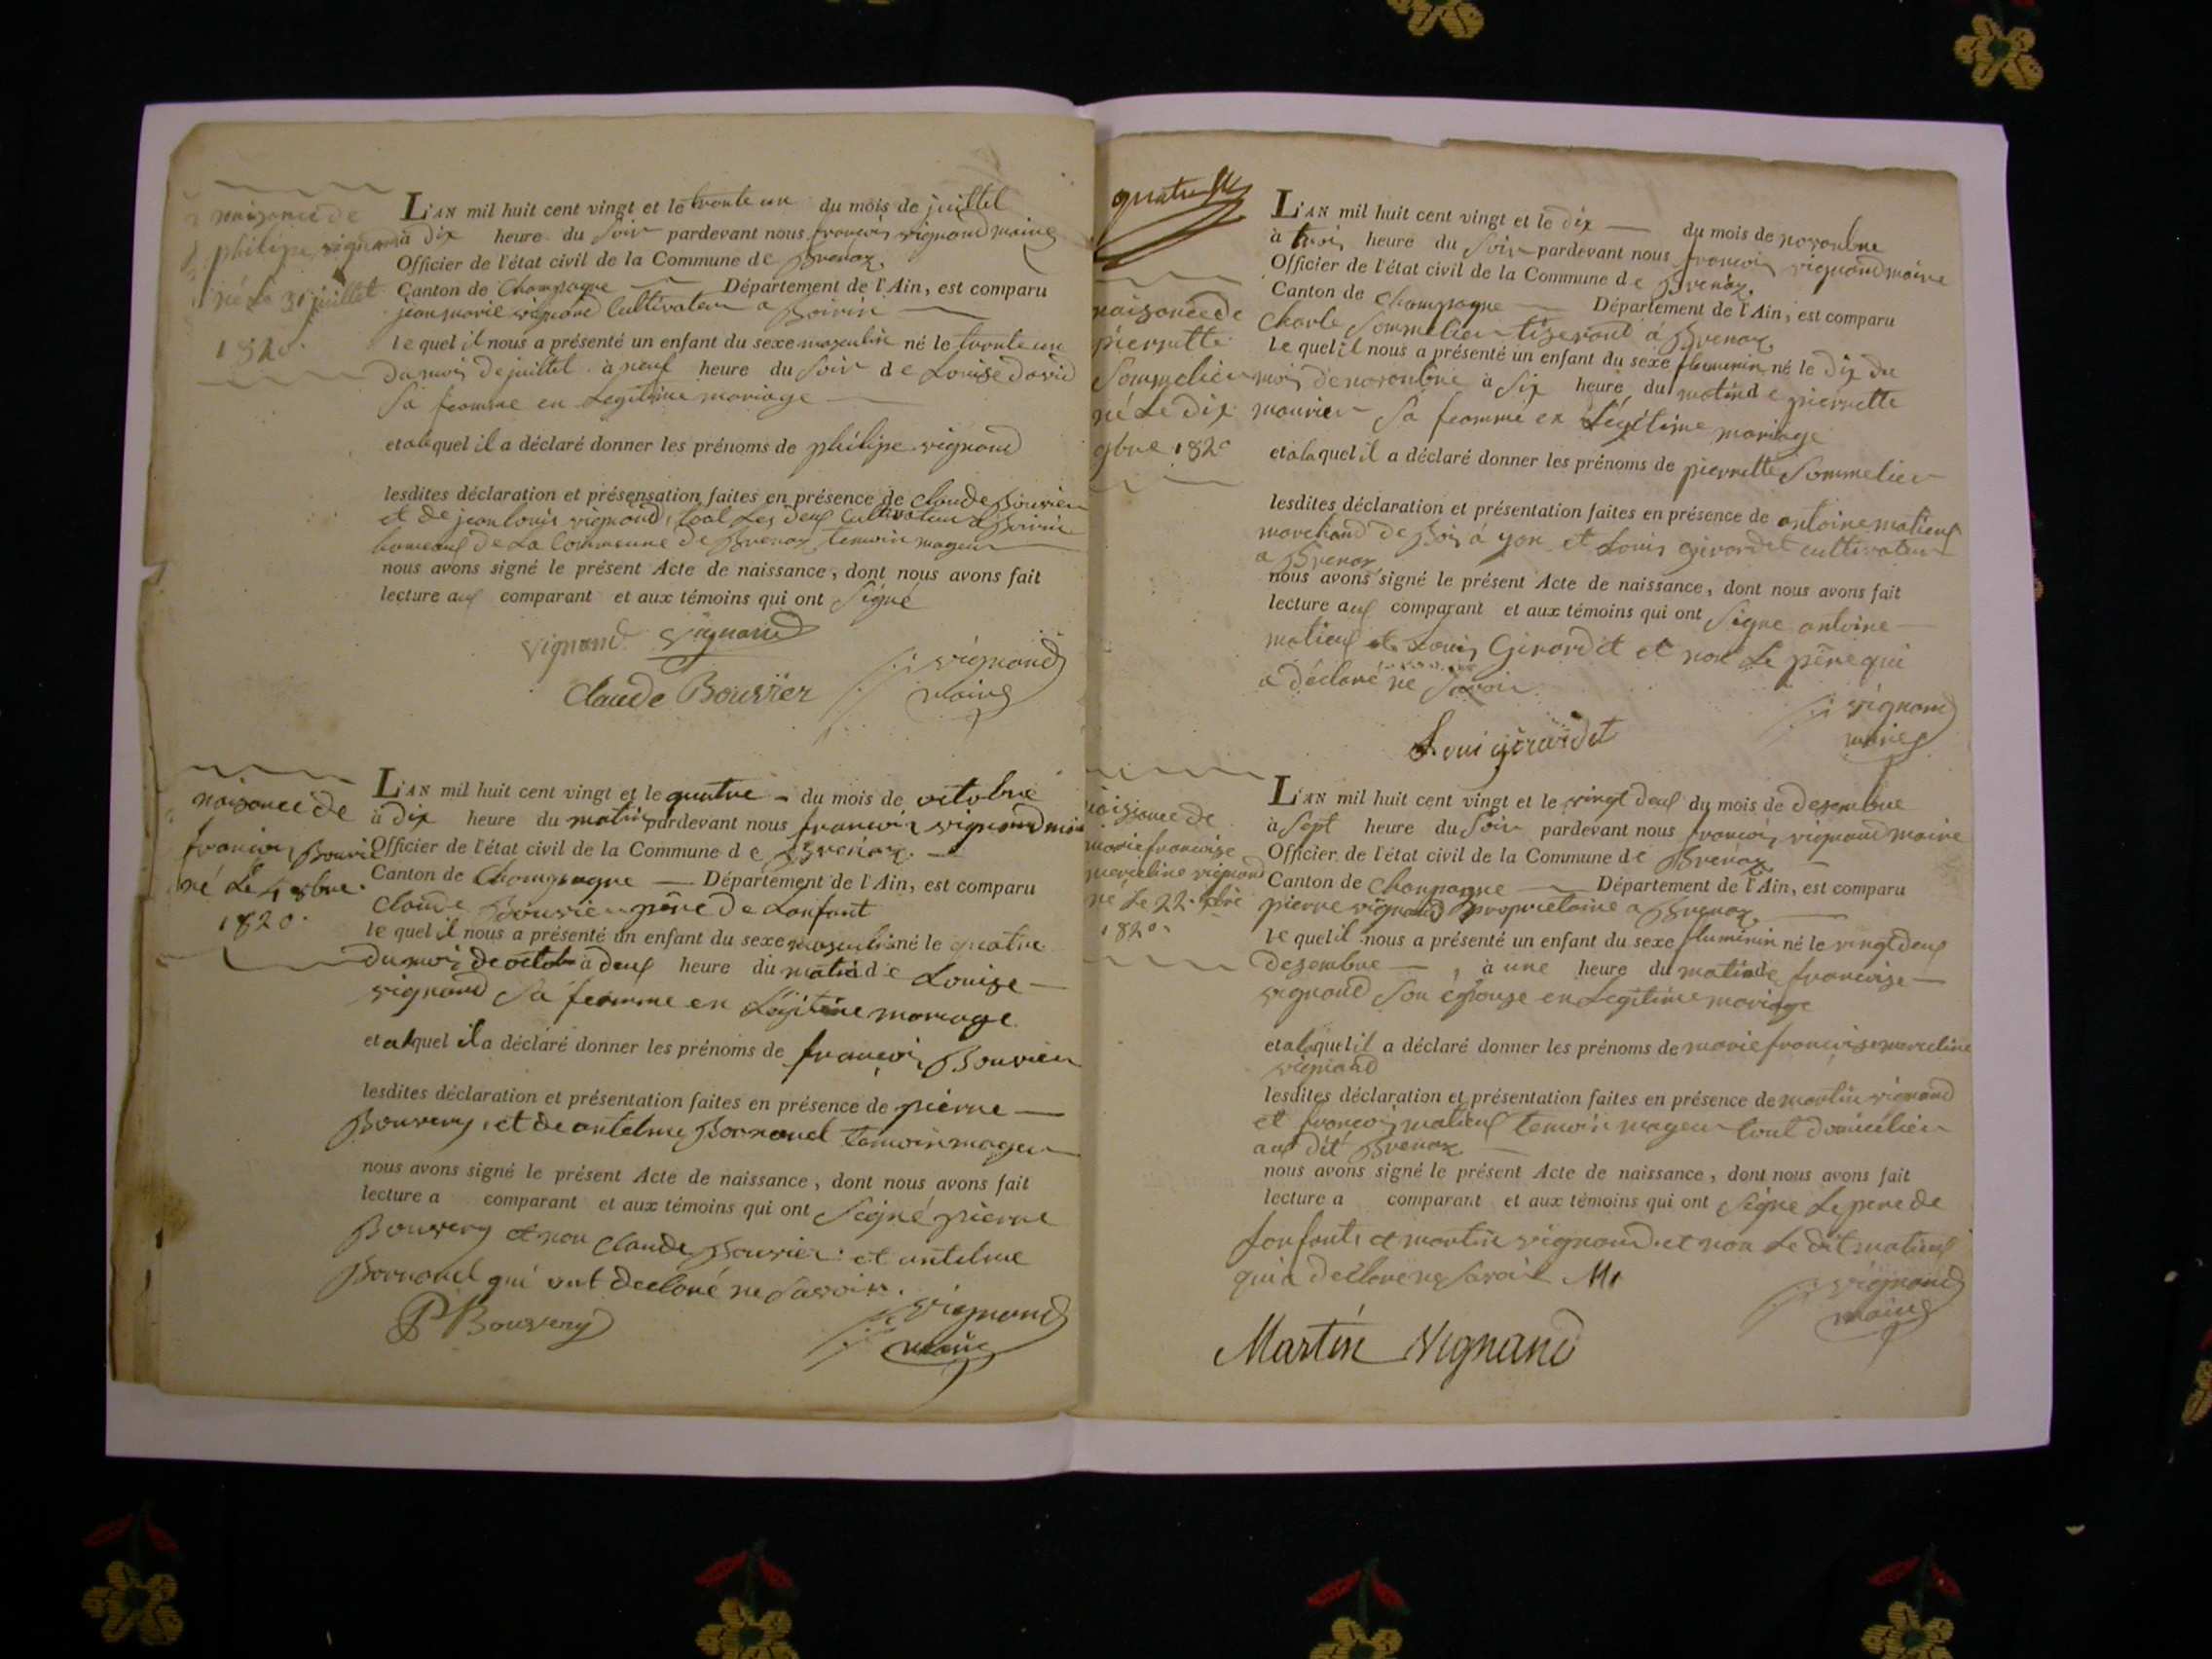 naisance de
philipe vignand
né Le 31 juillet
1820.
L'AN mil huit cent vingt et le trante un du mois de juillet
à Dix heure du Soir pardevant nous francois vignand maire
Officier de l'état civil de la Commune de Brenaz.
Canton de Champagne Département de l'Ain, est comparu
jean marie vignand Cultivateur a
le quel il nous a présenté un enfant du sexe masculin né le trante un
Du mois De juillet à neuf heure du Soir de Louise David
Sa feamme en Legitime mariage
et al quel il a déclaré donner les prénoms de philipe vignand
lesdites déclaration et présensation faites en présence de Claude Bouvier
et de jean louis vignand, tout Les deux Cultivateur a
hameaux de La Commeune De Brenaz temoin mageur
nous avons signé le présent Acte de naissance, dont nous avons fait
lecture aux comparant et aux témoins qui ont Signé
vignand vignand
Claude Bouvier
vignand
maire
naisance de
francois Bouvier
né Le 4 8bre
1820.
L'AN mil huit cent vingt et le quatre du mois de octobre
à Dix heure du matin pardevant nous francois vignand maire
Officier de l'état civil de la Commune de Brenaz.
Canton de Champagne Département de l'Ain, est comparu
Claude Bouvier père De Lanfant
le quel il nous a présenté un enfant du sexe masculin né le quatre
Du mois De octob à deux heure du matin de Louise
vignand Sa feamme en Légitime mariage
et al quel il a déclaré donner les prénoms de francois Bouvier
lesdites déclaration et présentation faites en présence de pierre
Bouvery, et de antelme temoin mageur
nous avons signé le présent Acte de naissance, dont nous avons fait
lecture a comparant et aux témoins qui ont Signé pierre
Bouvery et non Claude Bouvier et antelme
qui ont Declaré ne Savoir.
P Bouvery
vignand
maire
quatre
naisance de
pierrette
Sommelier
né Le Dix
9bre 1820
L'AN mil huit cent vingt et le Dix du mois de novonbre
à trois heure du Soir pardevant nous francois vignand maire
Officier de l'état civil de la Commune de Brenaz.
Canton de Champagne Département de l'Ain, est comparu
Charle Sommelier tiserand à Brenaz
le quel il nous a présenté un enfant du sexe fluminin né le Dix du
mois De novonbre à Six heure du matin de pierrette
mourier Sa feamme en Légitime mariage
et ala quel il a déclaré donner les prénoms de pierrette Sommelier
lesdites déclaration et présentation faites en présence de antoine matieux
marchand de Bois à yon et Louis girardet cultivateur
a Brenaz
nous avons signé le présent Acte de naissance, dont nous avons fait
lecture aux comparant et aux témoins qui ont Signe antoine
matieux et Louis Girardet et non Le père qui
a Déclaré ne Savoir
Loui girardet
vignand
maire
naissance de
marie francoise
marceline vignand
né Le 22
1820
L'AN mil huit cent vingt et le vingt deux du mois de desembre
à Sept heure du Soir pardevant nous francois vignand maire
Officier de l'état civil de la Commune de Brenaz
Canton de Champagne Département de l'Ain, est comparu
pierre vignand propriétaire a Brenaz.
le quel il nous a présenté un enfant du sexe fluminin né le vingt deux
desembre, à une heure du matin de francoise
vignand Son épouse en Legitime mariage
et ala quel il a déclaré donner les prénoms de marie francoise marceline
vignand
lesdites déclaration et présentation faites en présence de martin vignand
et francois matieux temoin mageur tout domicilier
aux dit Brenaz
nous avons signé le présent Acte de naissance, dont nous avons fait
lecture a comparant et aux témoins qui ont Signe Le pere de
Lonfant, et martin vignand et non Le dit matieux
qui a Declare ne Savoir
vignand
maire
Martin Vignand